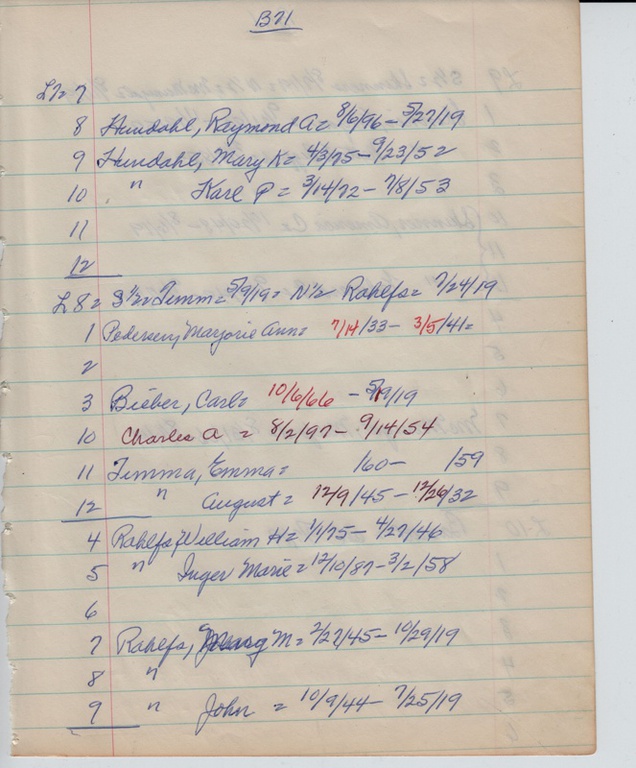 B71
L7= 7
8 Hundahl, Raymond A= 8/6/96 - 5/27/19
9 Hundahl, Mary K= 4/3/75 - 9/23/52
10 " Karl P = 3/14/72 - 7/8/53
11
12
L8 = S½ Timm= 5/9/19 = N½ Rahlfs= 7/24/19
1 Pedersen, Marjorie Ann= 7/14/33 - 3/5/41=
2
3 Bieber, Carl= 10/6/66 - 5/9/19
10 Charles A = 8/2/97 - 9/14/54
11 Timma, Emma= /60 - /59
12 " August = 12/9/45 - 12/26/32
4 Rahlfs, William H= 1/1/75 - 4/27/46
5 " Inger Marie = 12/10/87 - 3/2/58
6
7 Rahlfs, M= 2/27/45 - 10/29/19
8 "
9 " John = 10/9/44 - 7/25/19